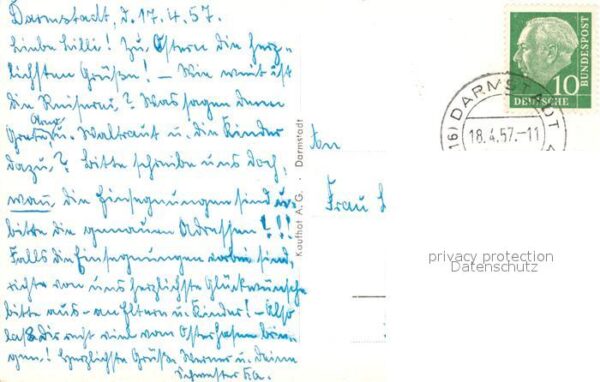 Darmstadt, d. 17.4.57.
Liebe Lilli! Zu Ostern die herz-
lichsten Grüße! – Wie weit ist
die Ruiserei? Was sagen denn
Grete, u. Waltraut u. die Kinder
dazu? Bitte schreibe uns doch,
wann die Einsegnungen sind u.
bitte die genauen Adressen!!!
Falls die Einsegnungen vorbei sind,
richte von uns herzlichste Glückwünsche
bitte aus – an Eltern u. Kinder! – Also
laß Dir recht viel vom Osterhasen brin-
gen! Herzlichste Grüße Werner u. Deine
Schwester
An
Frau
Kaufhof A.G. · Darmstadt
10
DEUTSCHE
BUNDESPOST
(16) DARMSTADT
18.4.57.-11
privacy protection
Datenschutz